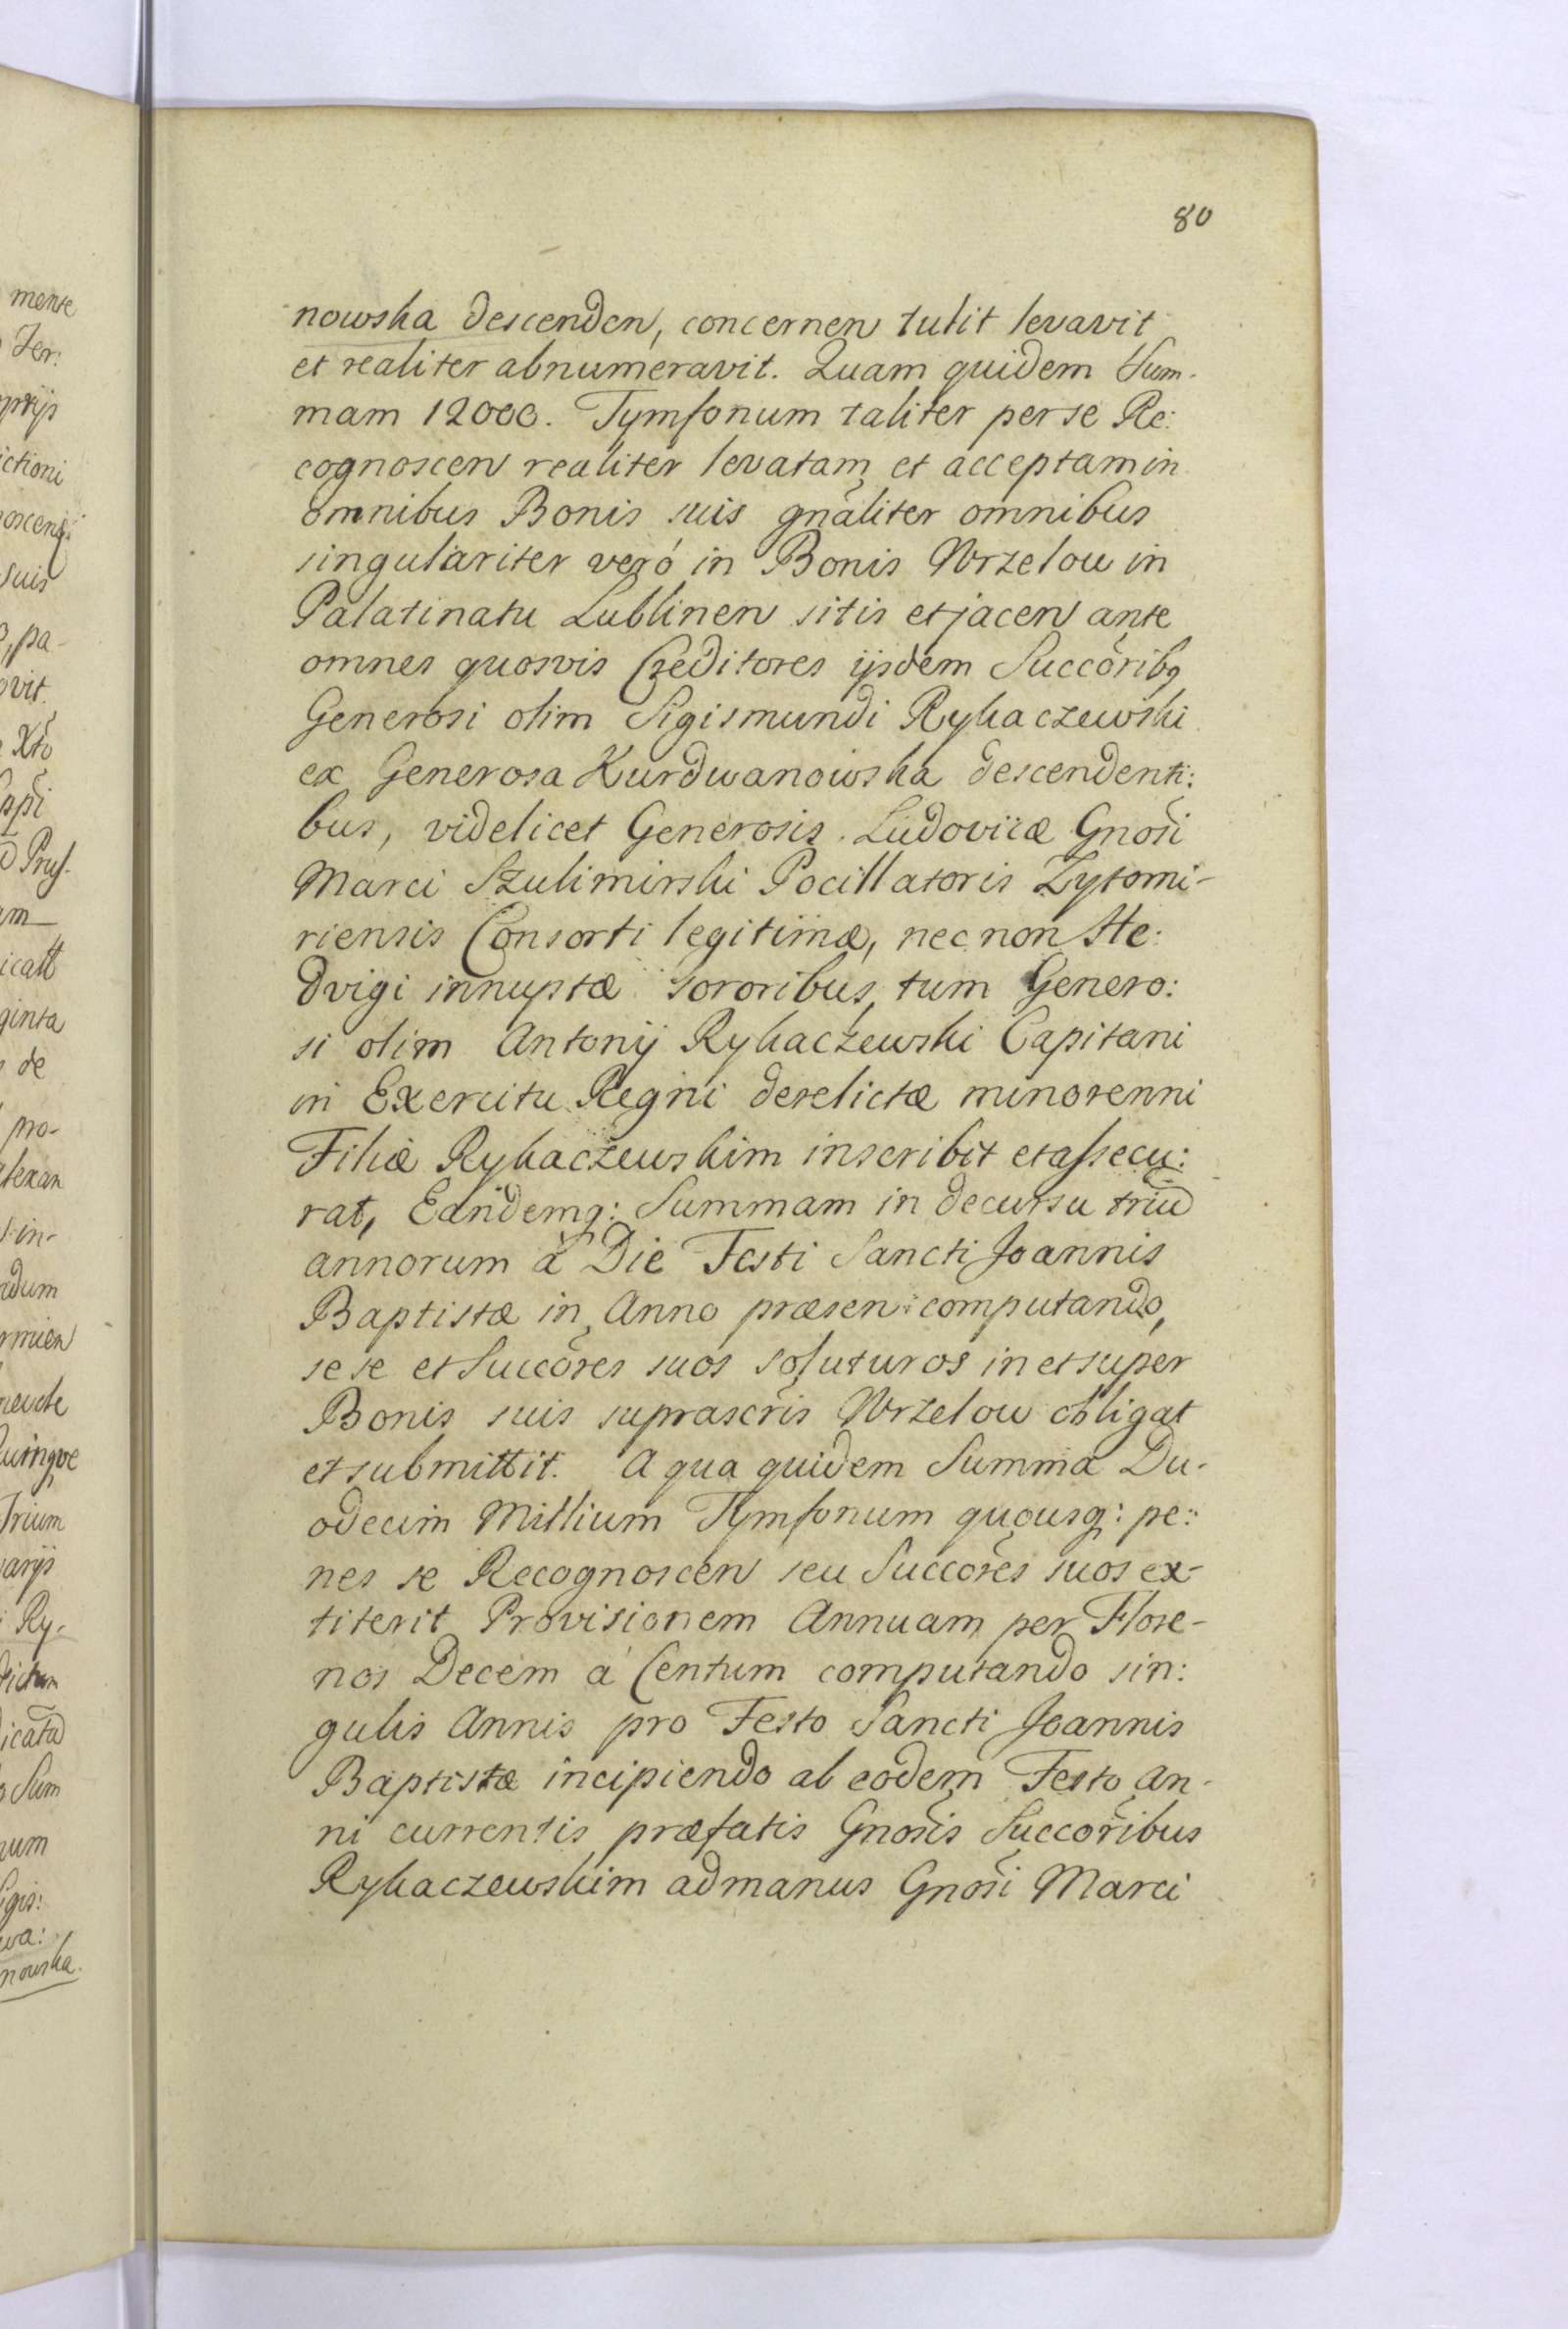 80
nowska descenden, concernen tulit levavit
et realiter abnumeravit. Quam quidem Sum-
mam 12000. Tymfonum taliter per se Re:
cognoscen realiter levatam et acceptam in
omnibus Bonis suis gnãliter omnibus
singulariter veró in Bonis Wrzelow in
Palatinatu Lublinen sitis et jacen ante
omnes quosvis Creditores ijsdem Succõribq
Generosi olim Sigismundi Rykaczewski
ex Generosa Kurdwanowska descendenti:
bus, videlicet Generosis Ludovicæ Gnõsi
Marci Szulimirski Pocillatoris Zytomi-
riensis Consorti legitimæ, nec non He:
dvigi innuptæ sororibus, tum Genero:
si olim Antonij Rykaczewski Capitani
in Exercitu Regni derelictæ minorenni
Filiæ Rykaczewskim inscribit et assecu:
rat, Eandemq: Summam in decursu triũ
annorum à Die Festi Sancti Joannis
Baptistæ in Anno præsen computando,
se se et Succõres suos soluturos in et super
Bonis suis suprascr̃is Wrzelow obligat
et submittit. A qua quidem Summa Du-
odecim Millium Tymfonum quousq: pe:
nes se Recognoscen seu Succõres suos ex-
titerit Provisionem Annuam per Flore-
nos Decem á Centum computando sin:
gulis Annis pro Festo Sancti Joannis
Baptistæ incipiendo ab eodem Festo An-
ni currentis præfatis Gnõsis Succõribus
Rykaczewskim ad manus Gnõsi Marci